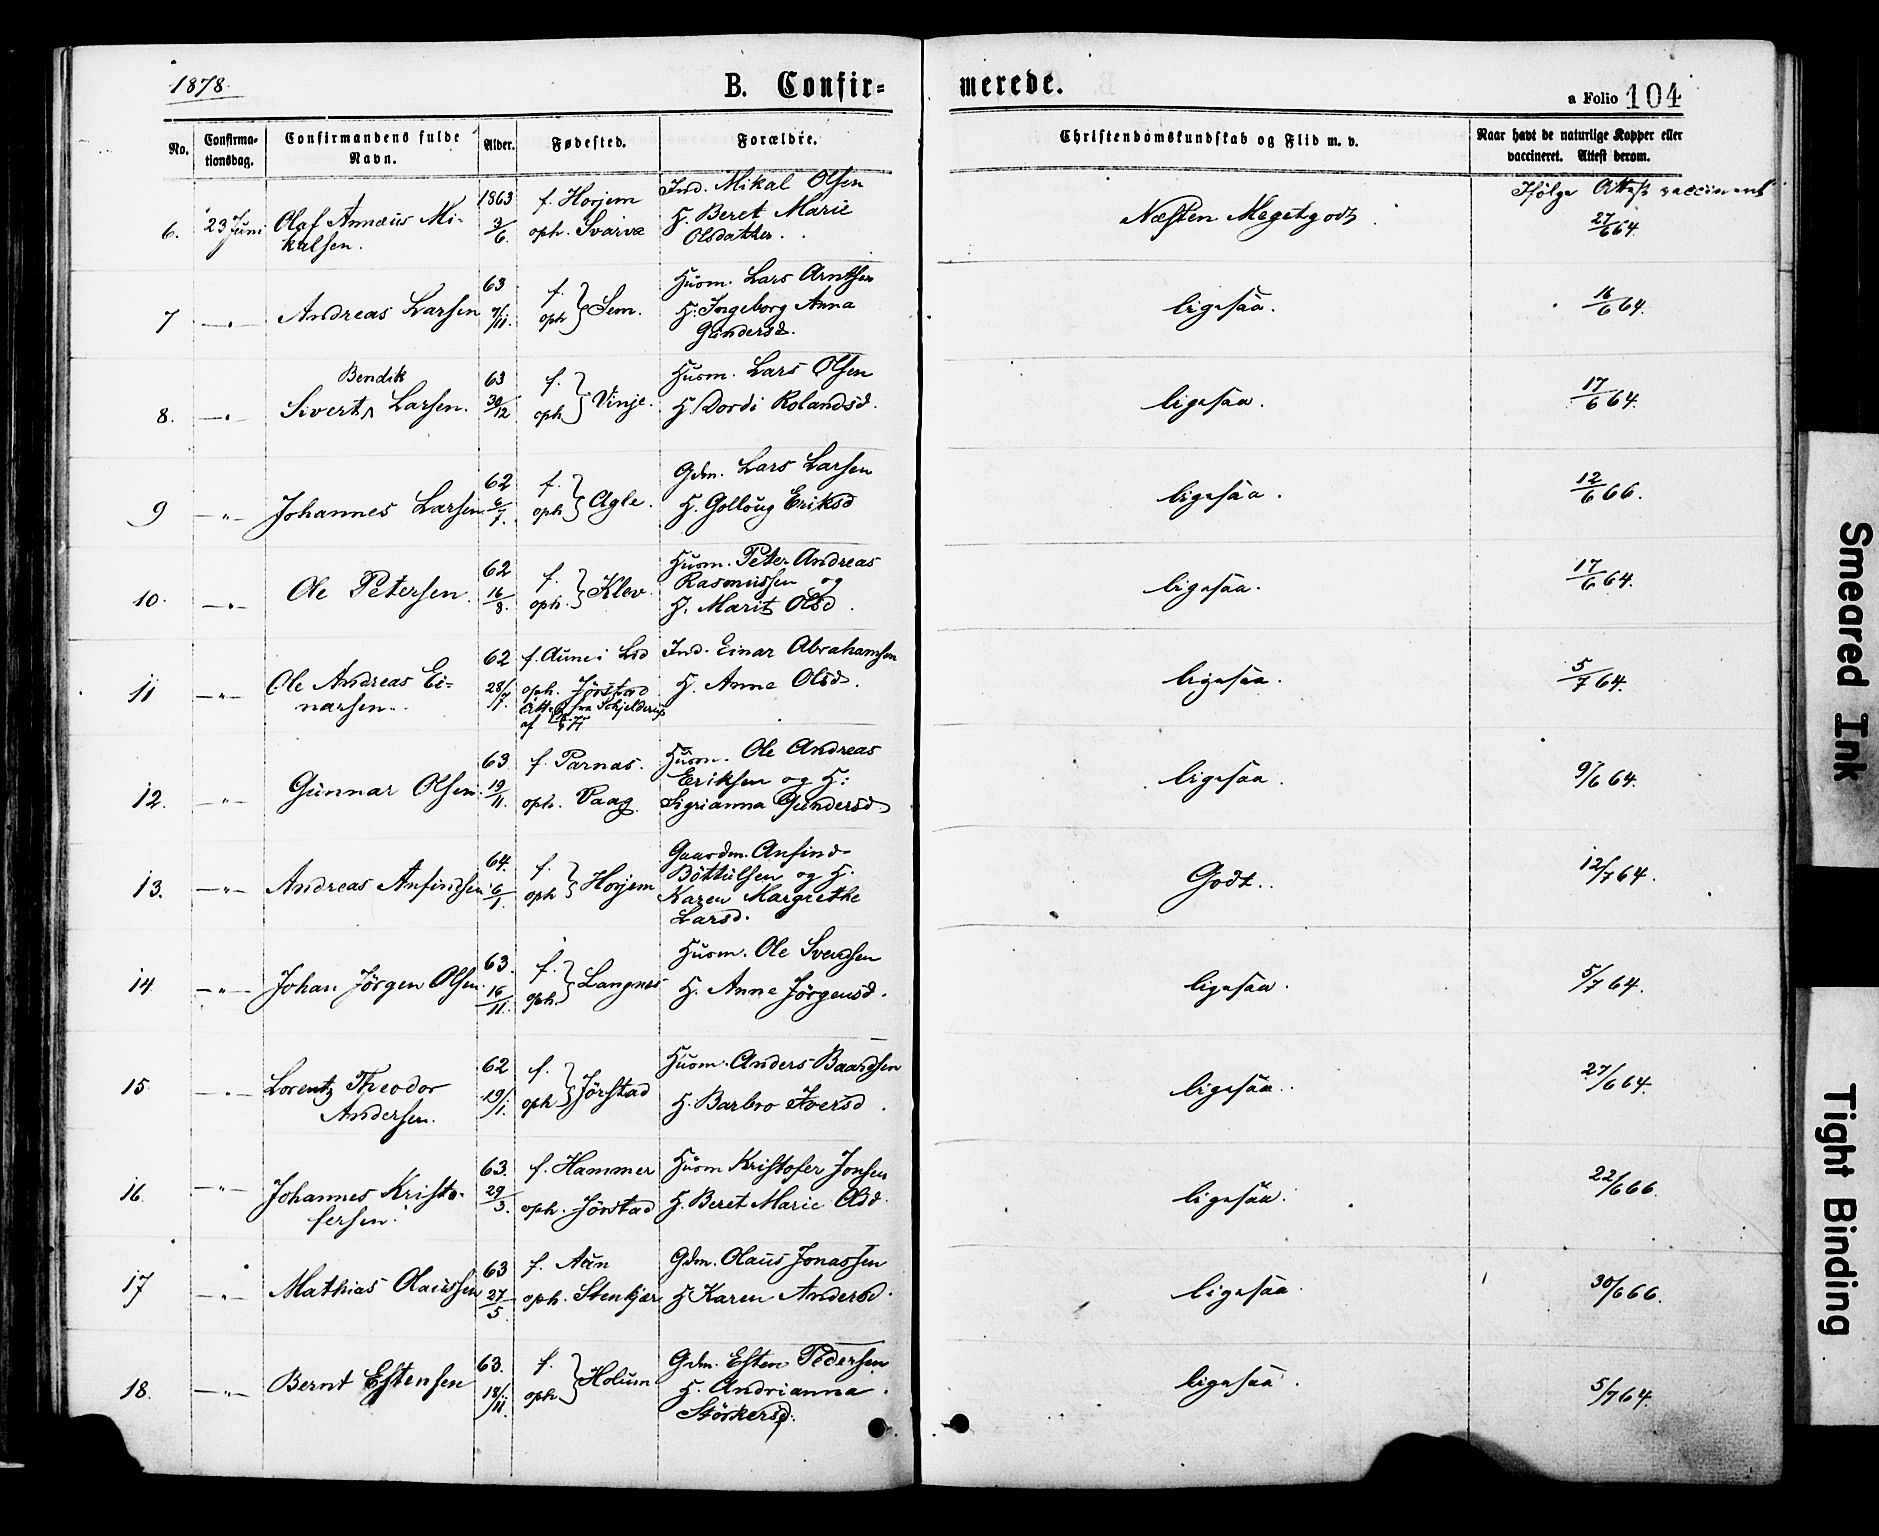 1878.
B. Confir=
merede.
a Folio 104
No.
Confirma-
tionsdag.
Confirmandens fulde
Navn.
Alder.
Fødested.
Forældre.
Christendomskundskab og Flid m. v.
Naar havt de naturlige Kopper eller
vaccineret. Attest derom.
6. 23 Juni Olaf Annæus Mi-
kalsen.
1863
3/6
f. Horjem
oph. Svarva
Ind. Mikal Olsen
H. Beret Marie
Olsdatter.
Næsten Megetgodt
Ifølge Attest vaccineret
27/6 64.
7 —„— Andreas Larsen
63
7/11.
f.
oph } Sem.
Husm. Lars Arntsen
H. Ingeborg Anna
Gundersd.
ligesaa.
16/6 64.
8. —„— Bendik
Sivert Larsen.
63
30/12
f.
oph } Vinje.
Husm. Lars Olsen
H. Dordi Rolandsd.
ligesaa.
17/6 64.
9 —„— Johannes Larsen
62
6/7.
f.
oph } Agle.
Gdm. Lars Larsen
H. Golloug Eriksd
ligesaa.
12/6 66.
10. —„— Ole Petersen.
62
16/8.
f.
oph. } Klev.
Husm. Peter Andreas
Rasmussen og
H. Marit Olsd.
ligesaa.
17/6 64.
11 —„— Ole Andreas Ei=
narsen.
62
28/7.
f. Aune i Lid
oph. Jörstad
Att. fra Schjelderup
af
Ind. Einar Abrahamsen
H. Anne Olsd.
ligesaa.
5/7 64.
12. —„— Gunnar Olsen
63
19/11.
f. Parnas.
oph. Vaag.
Husm. Ole Andreas
Eriksen og H:
Sigrianna Gundersd
ligesaa.
9/6 64.
13. —„— Andreas Anfindsen
64.
6/1.
f.
oph } Horjem
Gaardm. Anfind
Böttulsen og H.
Karen Margrethe
Larsd.
Godt.
12/7 64.
14 —„— Johan Jörgen Olsen
63.
16/11.
f.
oph. } Langnes
Husm. Ole Svendsen
H. Anne Jörgensd.
ligesaa.
5/7 64.
15 —„— Lorentz Theodor
Andersen.
62
19/1.
f.
oph } Jörstad
Husm. Anders Baardsen
H. Barbro Iversd.
ligesaa.
27/6 64.
16. —„— Johannes Kristo-
fersen.
63.
29/3.
f. Hammer
oph. Jörstad
Husm Kristofer Jonsen
H. Beret Marie Olsd.
ligesaa.
22/6 66.
17 —„— Mathias Olaussen
63
27/5
f. Aun
oph. Stenkjær
Gdm. Olaus Jonassen
H Karen Andersd.
ligesaa
30/6 66.
18. —„— Bernt Estensen
63.
18/11.
f.
oph } Holum
Gdm. Esten Pedersen
H. Andrianna
Störkersd.
ligesaa.
5/7 64.
Smeared Ink
Tight Binding